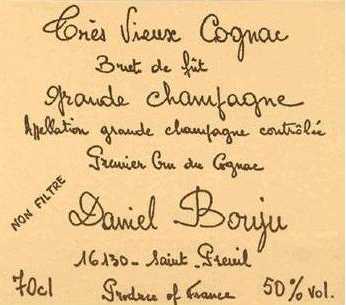 Très Vieux Cognac
Brut de fût
Grande Champagne
Appellation grande champagne contrôlée
Premier Cru du Cognac
NON FILTRE
Daniel Bouju
16130 - Saint-Preuil
70cl
Produce of France
50% vol.